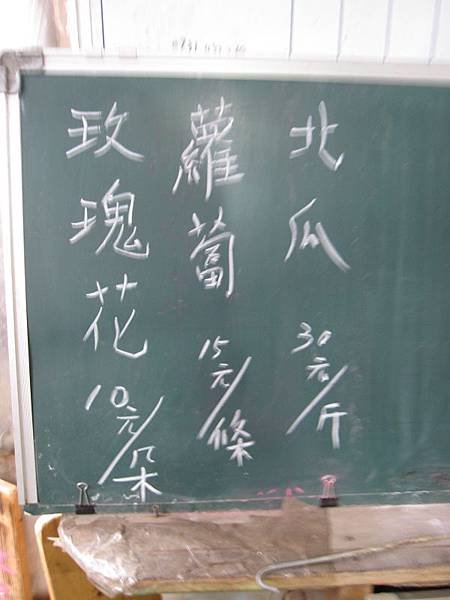 北瓜 30元/斤
蘿蔔 15元/條
玫瑰花 10元/朵